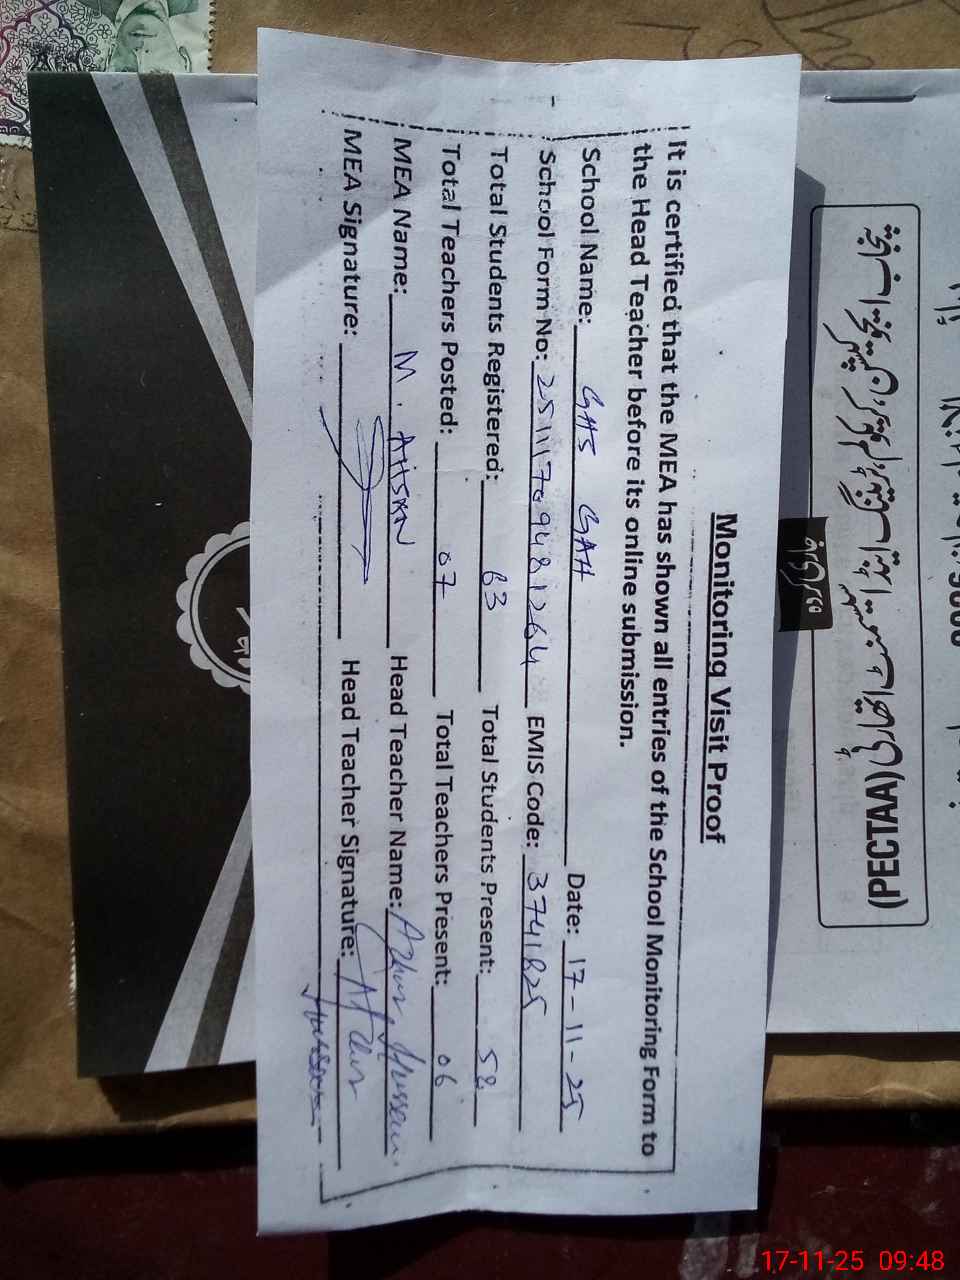 Monitoring Visit Proof
It is certified that the MEA has shown all entries of the School Monitoring Form to
the Head Teacher before its online submission.
School Name: GHS GAH Date: 17-11-25
School Form No: 25111709481264 EMIS Code: 3741825
Total Students Registered: 63 Total Students Present: 58
Total Teachers Posted: 07 Total Teachers Present: 06
MEA Name: M. AHSAN Head Teacher Name: Azhar Hussain
MEA Signature: Head Teacher Signature: Azhar Hussain
پنجاب ایجوکیشن، کریکولم، ٹریننگ اینڈ اسیسمنٹ اتھارٹی (PECTAA)
17-11-25 09:48